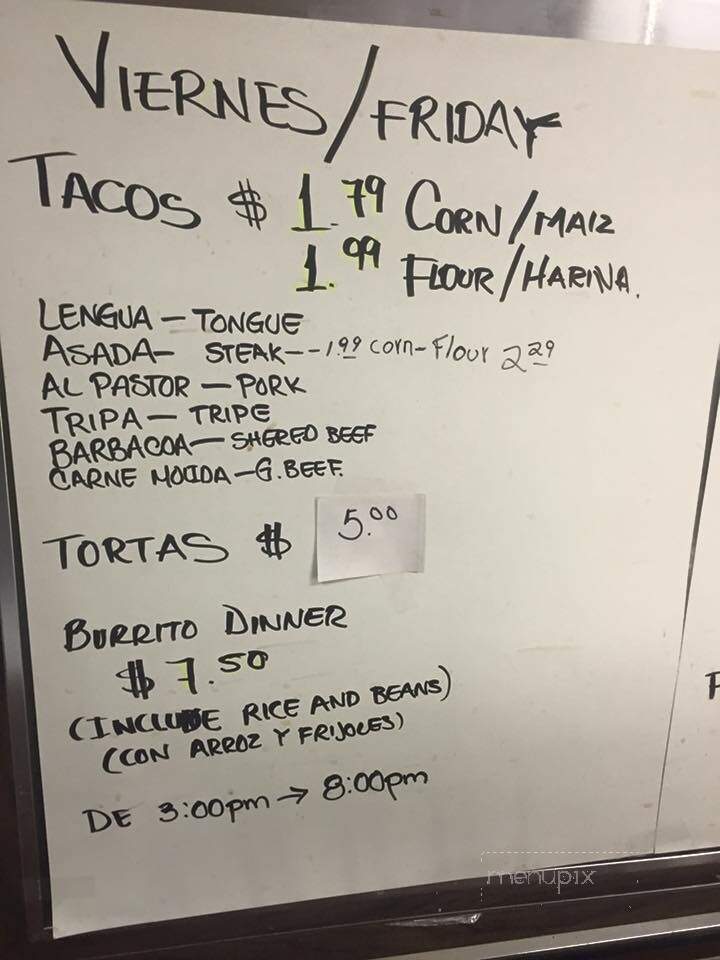 VIERNES/FRIDAY
TACOS $ 1.79 CORN/MAIZ
1.99 FLOUR/HARINA.
LENGUA — TONGUE
ASADA— STEAK--1.99 corn-Flour 2 29
AL PASTOR — PORK
TRIPA — TRIPE
BARBACOA — SHERED BEEF
CARNE MOIDA — G. BEEF.
TORTAS $ 5.00
BURRITO DINNER
$ 7.50
(INCLUDE RICE AND BEANS)
(CON ARROZ Y FRIJOLES)
DE 3:00pm → 8:00pm
menupix